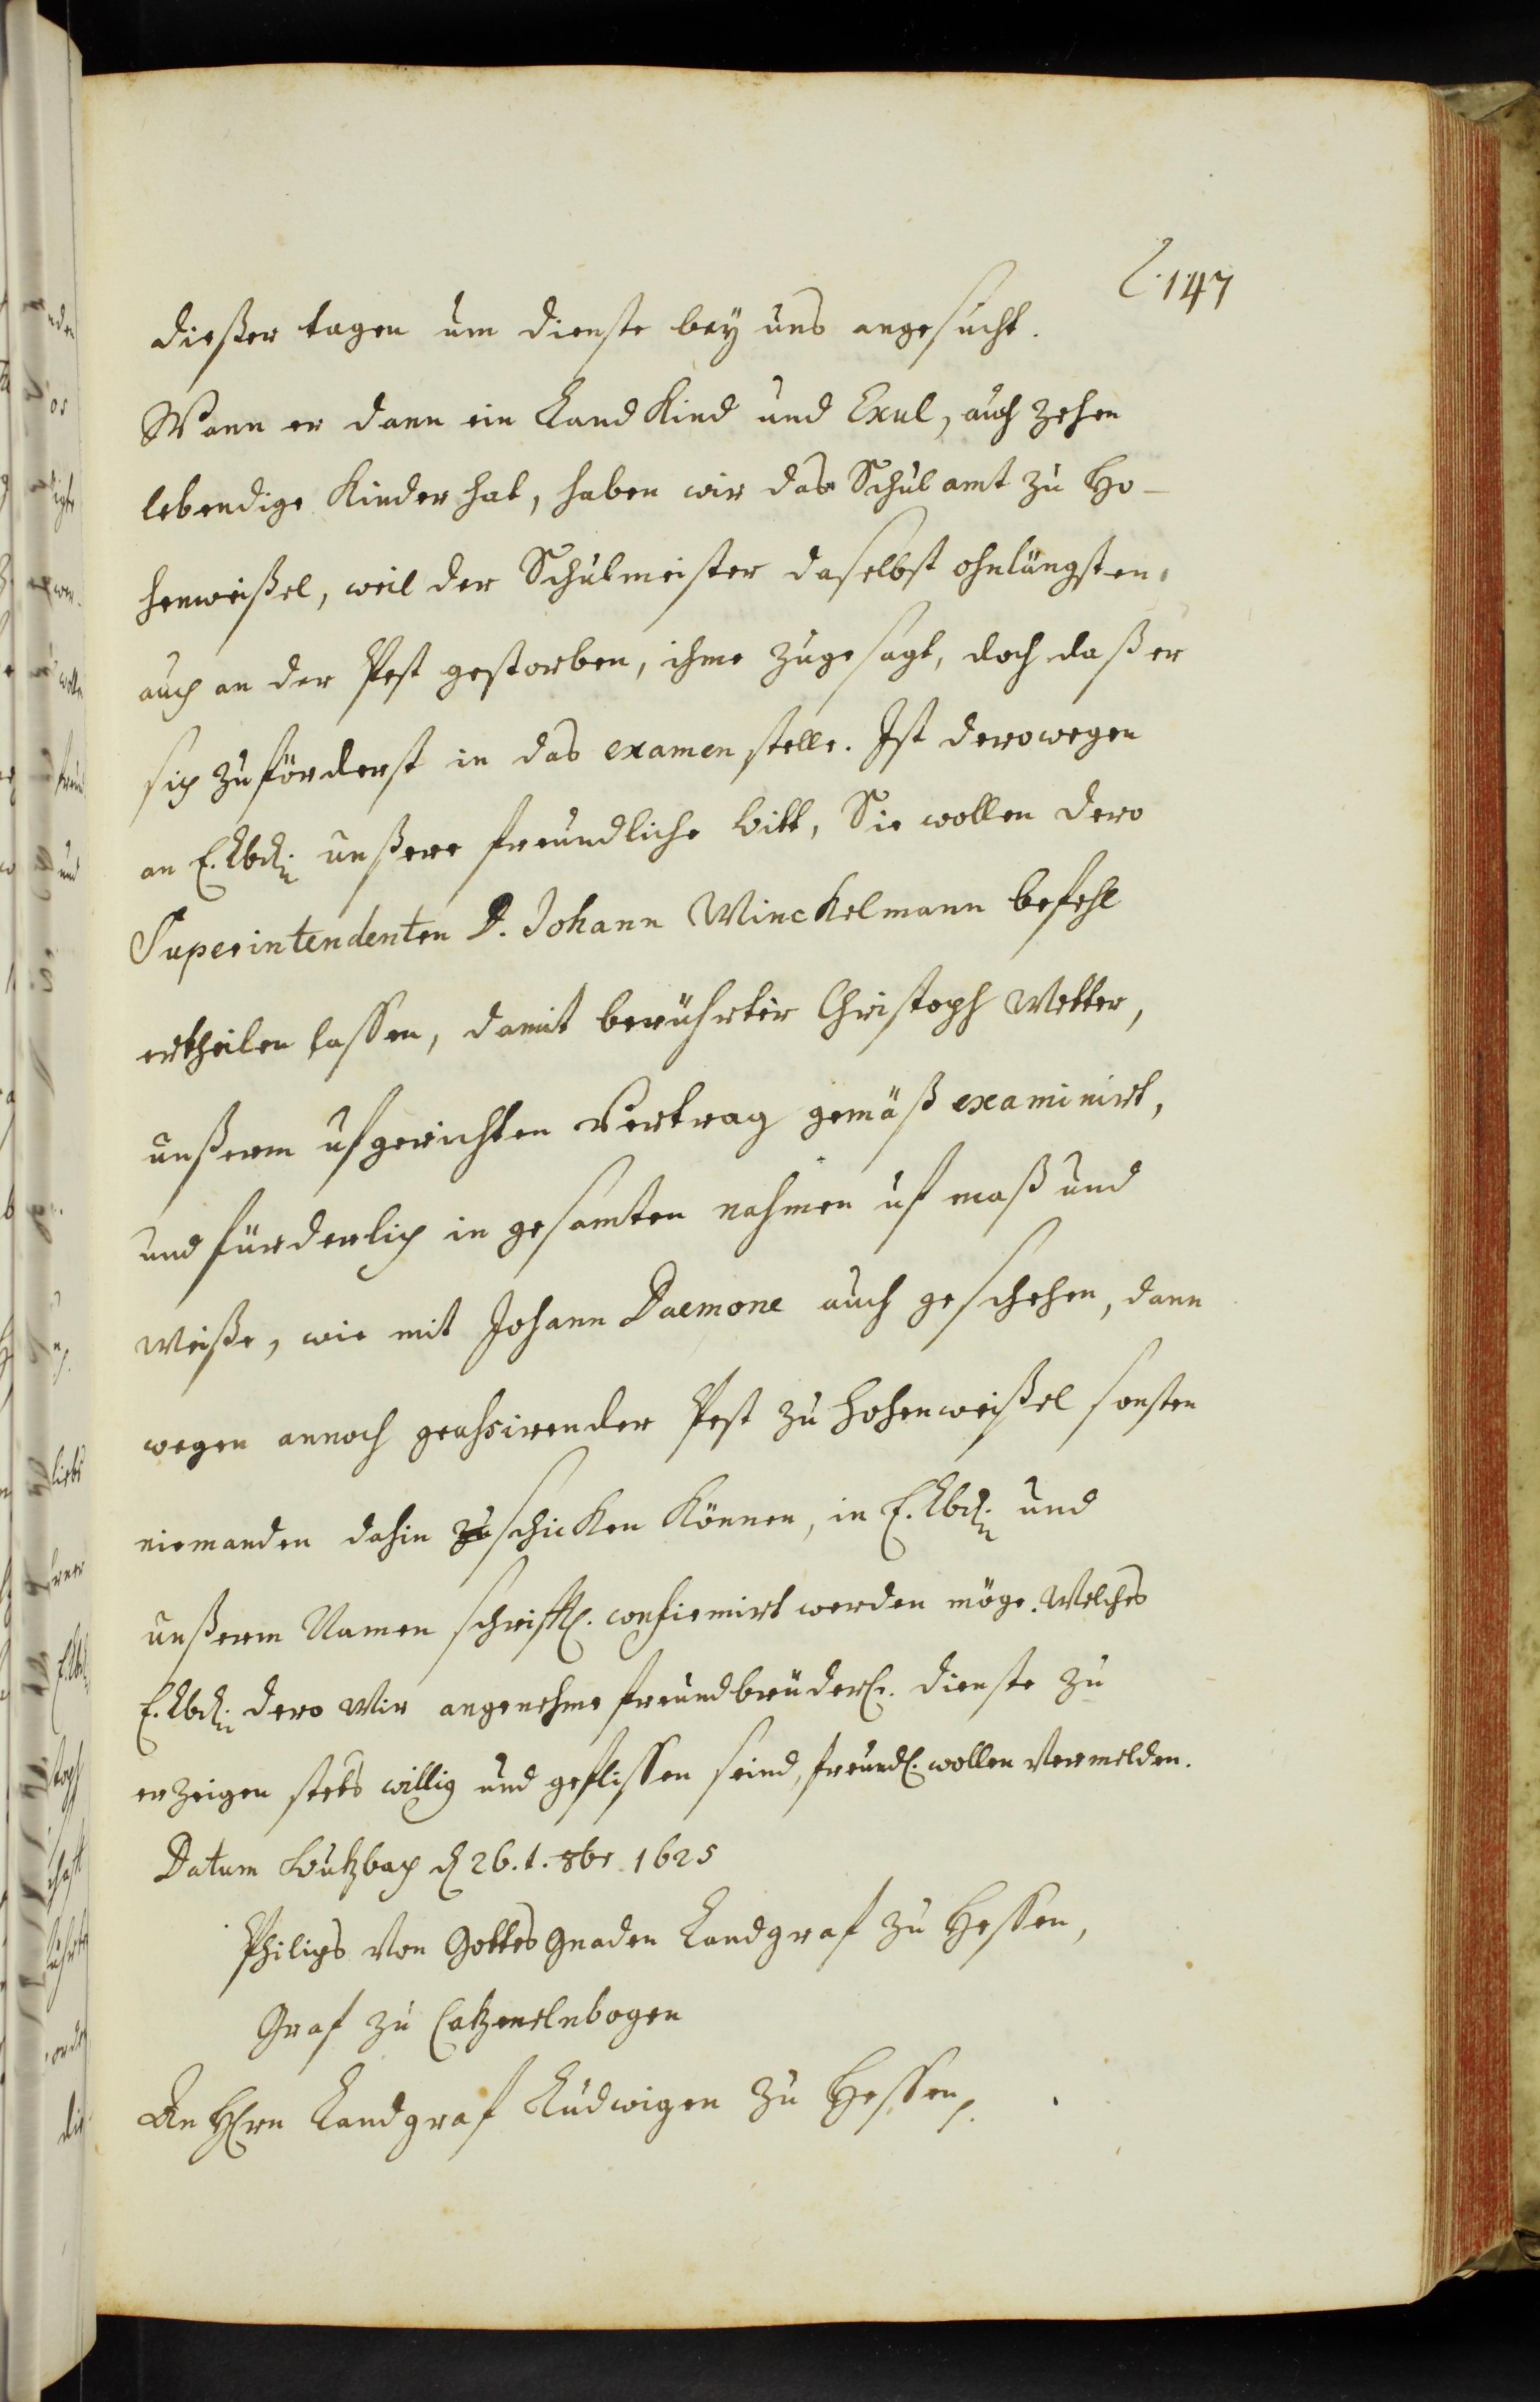 l. 147
dießer tagen um dienste bey uns angesucht.
Wann er dann ein Land Kind und Exul, auch zehen
lebendige Kinder hat, haben wir das Schulamt zu Ho-
henweißel, weil der Schulmeister daselbst ohnlängsten
auch an der Pest gestorben, ihme zugesagt, doch daß er
sich zuförderst in das examen stelle. Ist derowegen
an E. Lbd. unßere freundliche bitt, Sie wollen dero
Superintendenten D. Johann Winckelmann befehl
ertheilen lassen, damit berührter Christoph Vetter,
unßerm ufgerichten Vertrag gemäß examinirt,
und fürderlich in gesamten nahmen uf maß und
weiße, wie mit Johann Daemone auch geschehen, dann
wegen annoch grassirender Pest zu Hohenweißel sonsten
niemanden dahin zu schicken Können, in E. Lbd. und
unßerm Namen schrifftl. confirmirt werden möge. Welches
E. Lbd. dero Wir angenehme freundbrüderl. dienste zu
erzeigen stets willig und geflissen seind, freundl. wollen vermelden.
Datum Butzbach d 26. t. 8br 1625
Philips von Gottes Gnaden Landgraf zu Hessen,
Graf zu Catzenelnbogen
An Hrn Landgraf Ludwigen zu Hessen.